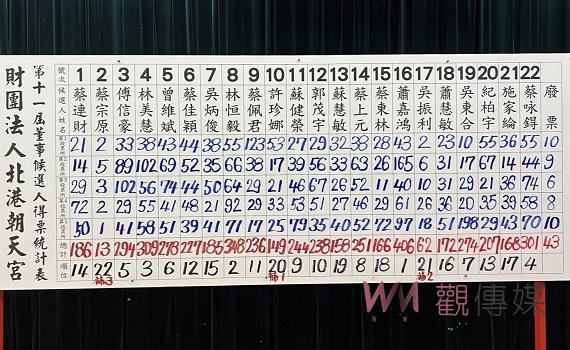 財團法人北港朝天宮
第十一屆董事候選人得票統計表
號次 1 2 3 4 5 6 7 8 9 10 11 12 13 14 15 16 17 18 19 20 21 22 廢票
候選人姓名 蔡連財 蔡宗原 傅信豪 林美慧 曾維斌 蔡佳穎 吳炳俊 林恒毅 蔡佩君 許珍娜 蘇健榮 郭茂宇 蘇慧敏 蔡上元 蔡東林 蕭嘉鴻 吳振利 蕭慧敏 吳東合 紀柏宇 施家綸 蔡咏鍀
第1投票所 21 2 33 38 43 44 38 55 123 53 27 29 32 38 28 43 2 23 10 55 36 55 10
第2投票所 14 5 89 102 69 52 35 66 38 17 39 56 33 63 26 165 6 31 17 67 14 44 9
第3投票所 29 3 102 56 74 44 50 64 29 21 46 67 26 52 11 40 10 31 29 21 36 74 6
第4投票所 72 2 29 55 41 48 21 92 29 33 53 51 27 46 29 61 26 36 20 35 39 58 8
第5投票所 50 1 41 58 51 39 41 71 17 25 79 35 40 52 72 97 18 51 198 29 43 70 10
總計 186 13 294 309 278 227 185 348 236 149 244 238 158 251 166 406 62 172 274 207 168 301 43
順位 14 22 5 3 6 12 15 2 11 20 9 10 19 8 18 1 21 16 7 13 17 4
補3 補1 補2
觀傳媒